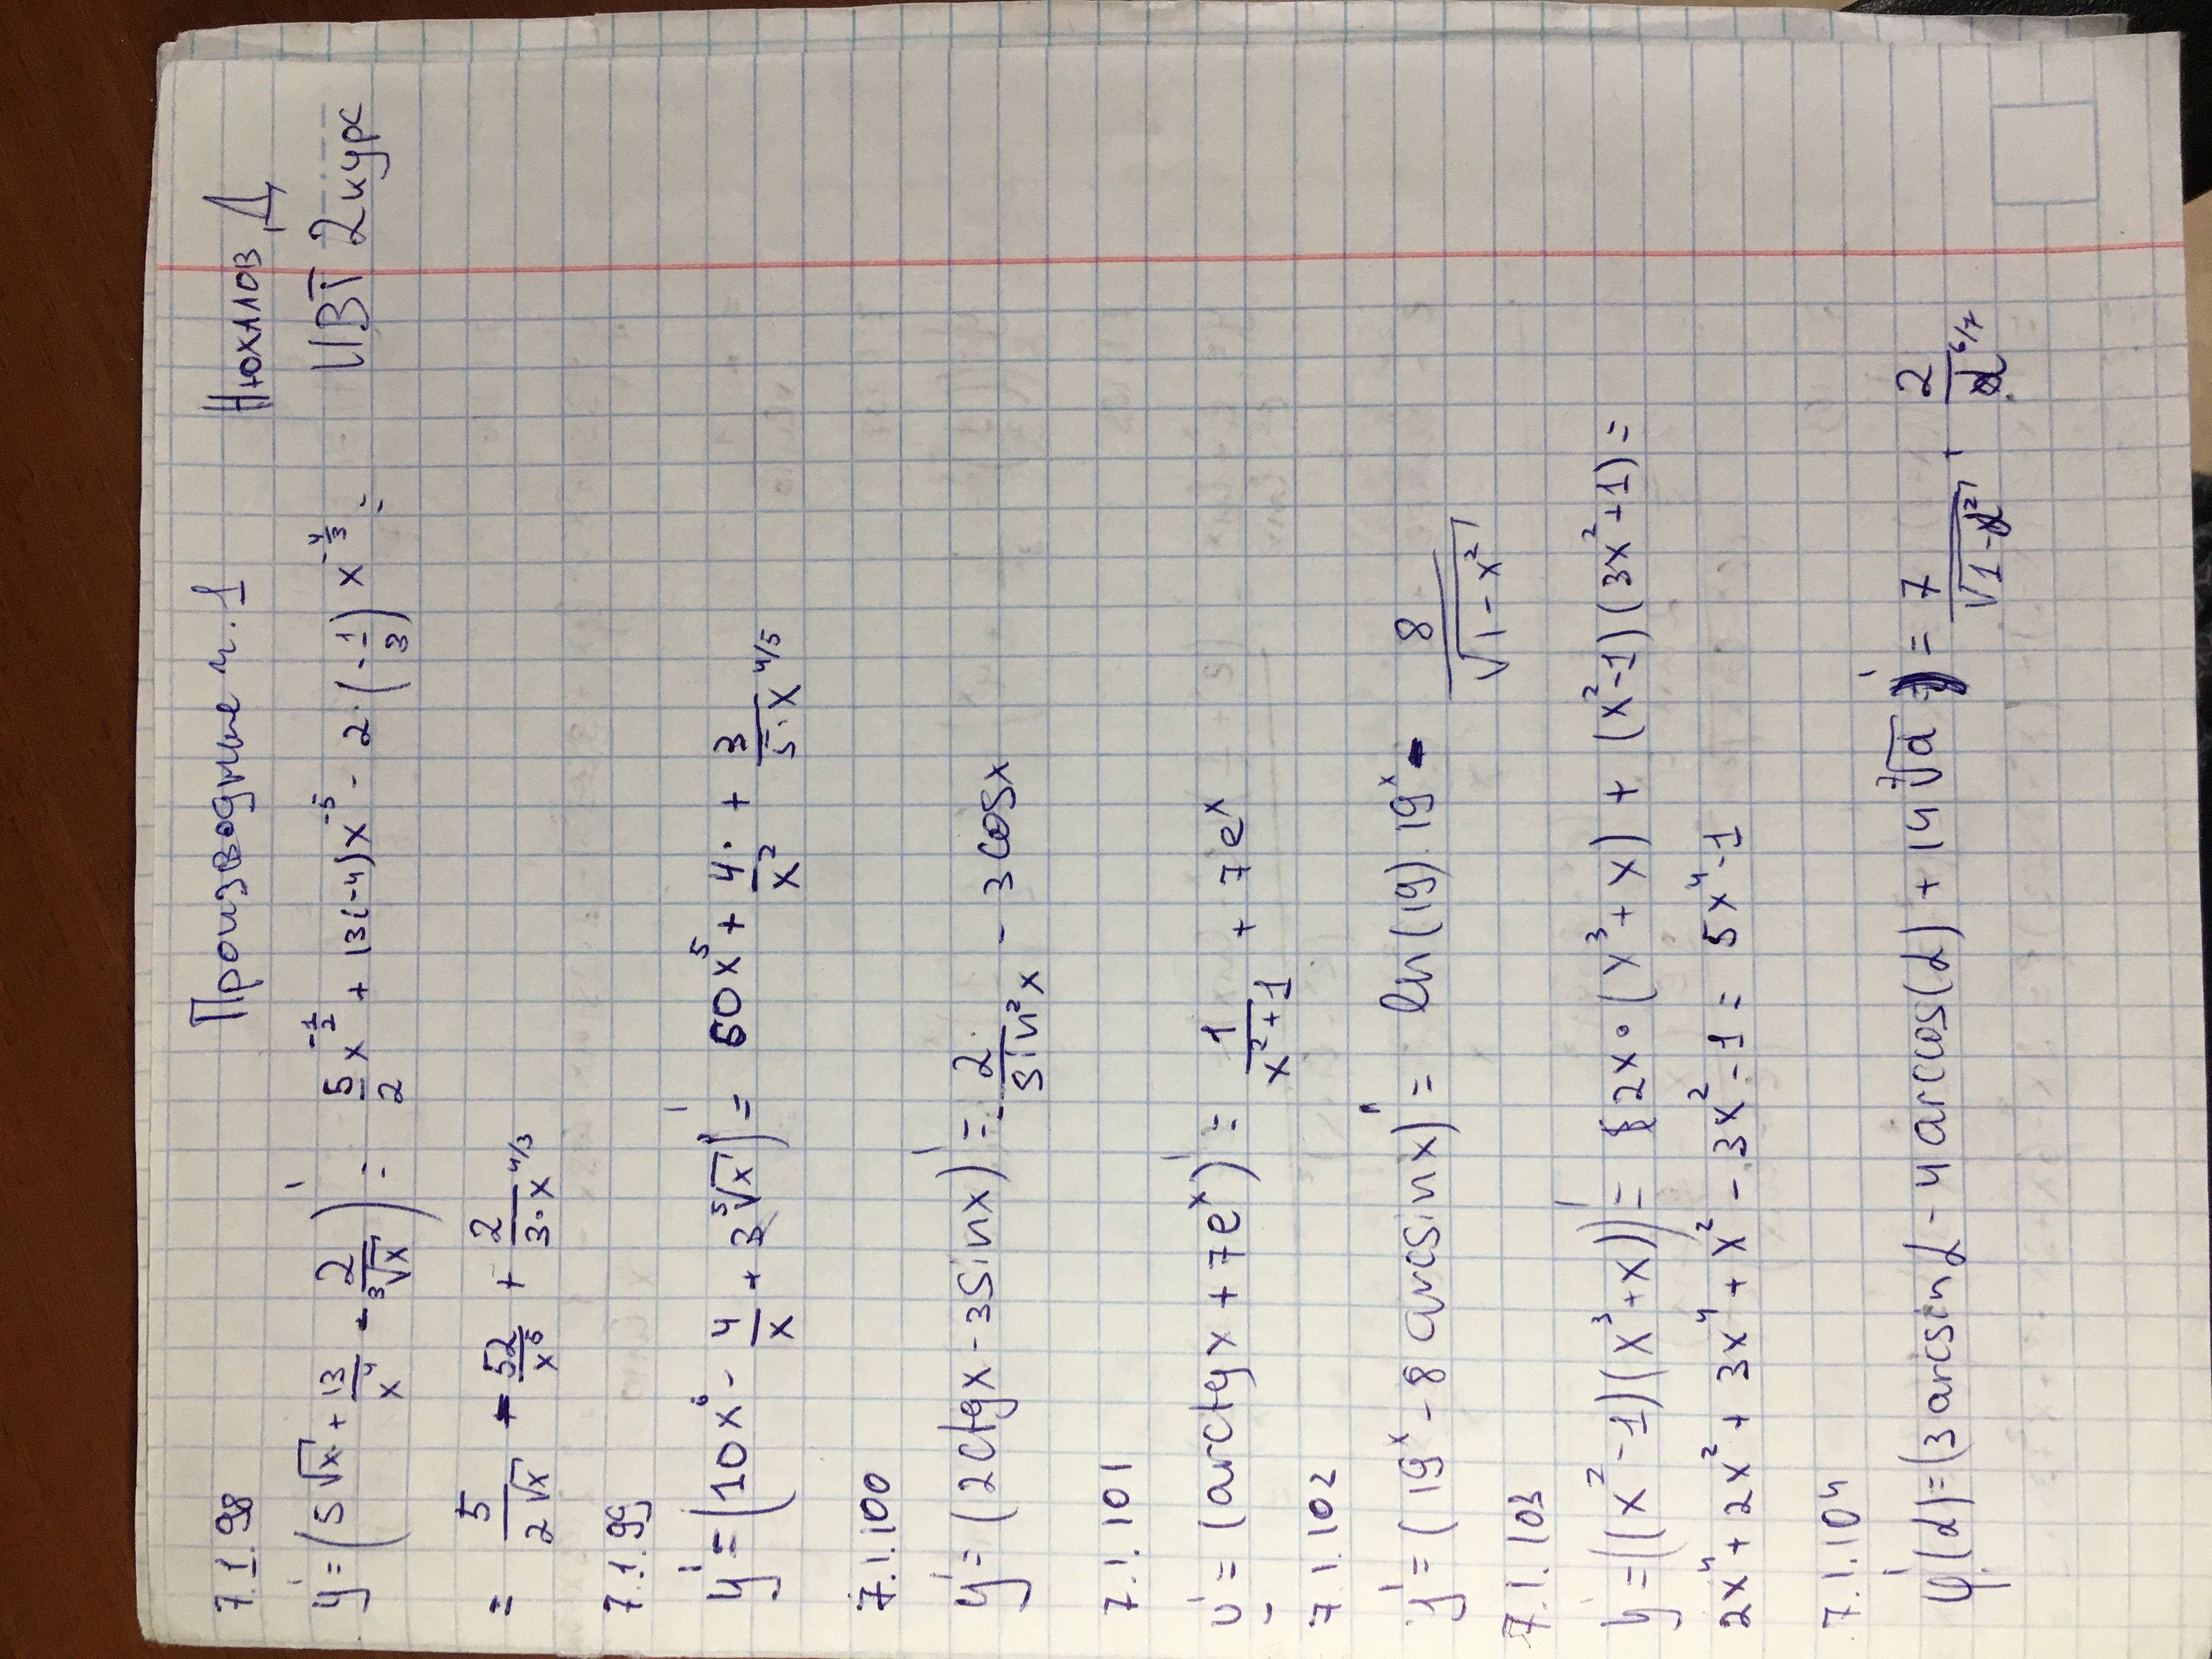 7.1.98 Производные ч. 1 Нюхалов Д
y' = (5√x + 13/x⁴ - 2/∛x)' = 5/2 x^(-1/2) + 13(-4)x^(-5) - 2·(-1/3) x^(-4/3) = ИВТ 2 курс
= 5/(2√x) - 52/x⁵ + 2/(3·x^(4/3))
7.1.99
y' = (10x⁶ - 4/x + 3⁵√x)' = 60x⁵ + 4/x² + 3/(5·x^(4/5))
7.1.100
y' = (2ctgx - 3sinx)' = -2/sin²x - 3cosx
7.1.101
y' = (arctgx + 7eˣ)' = 1/(x²+1) + 7eˣ
7.1.102
y' = (19ˣ - 8 arcsinx)' = ln(19)·19ˣ - 8/√(1-x²)
7.1.103
y' = ((x²-1)(x³+x))' = 2x·(x³+x) + (x²-1)(3x²+1) =
2x⁴ + 2x² + 3x⁴ + x² - 3x² - 1 = 5x⁴-1
7.1.104
φ'(α) = (3 arcsin α - 4 arccos(α) + 14 ⁷√α)' = 7/√(1-α²) + 2/α^(6/7)